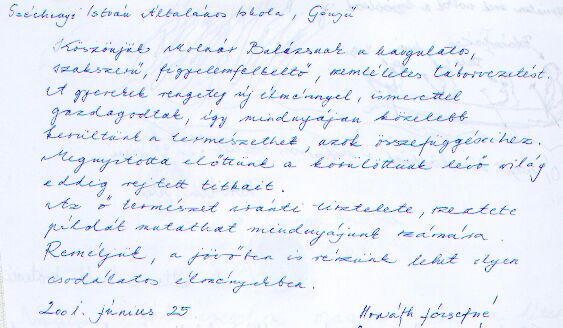 Széchenyi István Általános Iskola, Gönyű
Köszönjük Molnár Balázsnak a hangulatos,
szakszerű, figyelemfelkeltő, szemléletes táborvezetést.
A gyerekek rengeteg új élménnyel, ismerettel
gazdagodtak, így mindnyájan közelebb
kerültünk a természethez, azok összefüggéseihez.
Megnyitotta előttünk a körülöttünk lévő világ
eddig rejtett titkait.
Az ő természet iránti tisztelete, szeretete
példát mutathat mindnyájunk számára.
Reméljük, a jövőben is részünk lehet ilyen
csodálatos élményekben.
2001. június 25 Horváth Józsefné